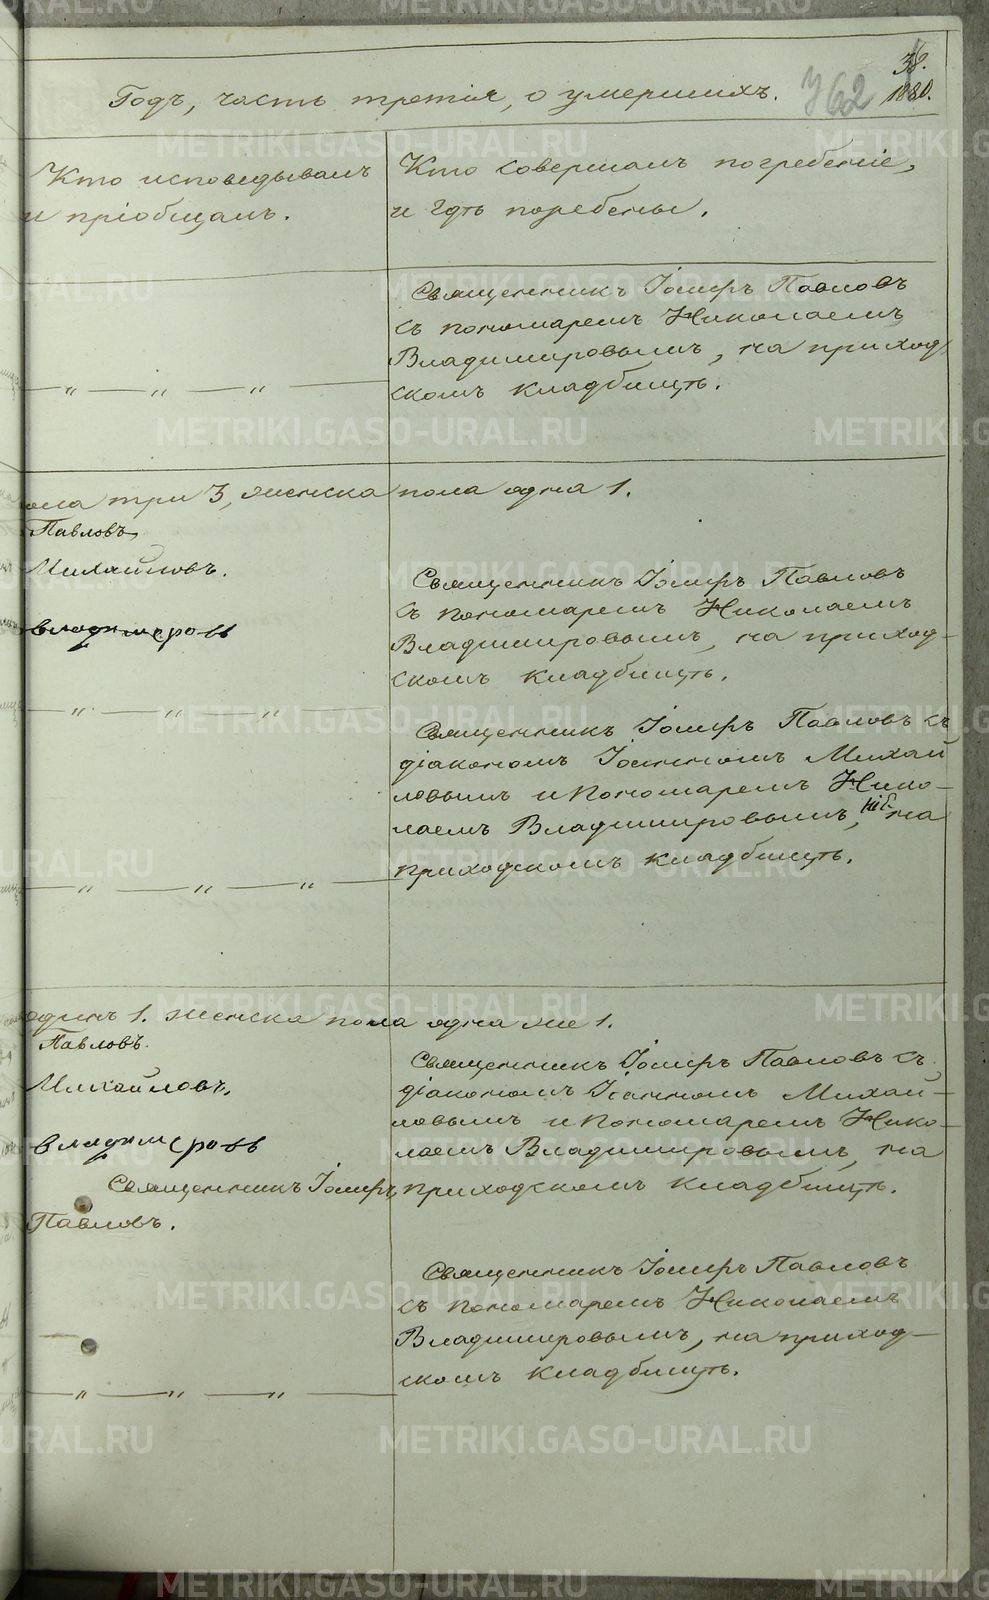 38.
362
1880.
Годъ, часть третія, о умершихъ.
Кто исповѣдывалъ
и пріобщалъ.
Кто совершалъ погребеніе,
и гдѣ погребены.
Священникъ Іосифъ Павловъ
съ пономаремъ Николаемъ
Владиміровымъ, на приход-
скомъ кладбищѣ.
— „ — „ — „ —
ола три 3, женска пола одна 1.
Павловъ
Михайловъ.
Владимеровъ
Священникъ Іосифъ Павловъ
съ пономаремъ Николаемъ
Владиміровымъ, на приход-
скомъ кладбищѣ.
— „ — „ — „ —
Священникъ Іосифъ Павловъ съ
діакономъ Іоанномъ Михай
ловымъ и пономаремъ Нико-
лаемъ Владиміровымъ, на
приходскомъ кладбищѣ.
— „ — „ — „ —
одинъ 1. женска пола одна же 1.
Павловъ.
Михайловъ.
Владимеровъ
Священникъ Іосифъ Павловъ съ
діакономъ Іоанномъ Михай-
ловымъ и пономаремъ Нико-
лаемъ Владиміровымъ, на
приходскомъ кладбищѣ.
Священникъ Іосифъ
Павловъ.
Священникъ Іосифъ Павловъ
съ пономаремъ Николаемъ
Владиміровымъ, на приход-
скомъ кладбищѣ.
— „ — „ — „ —
METRIKI.GASO-URAL.RU